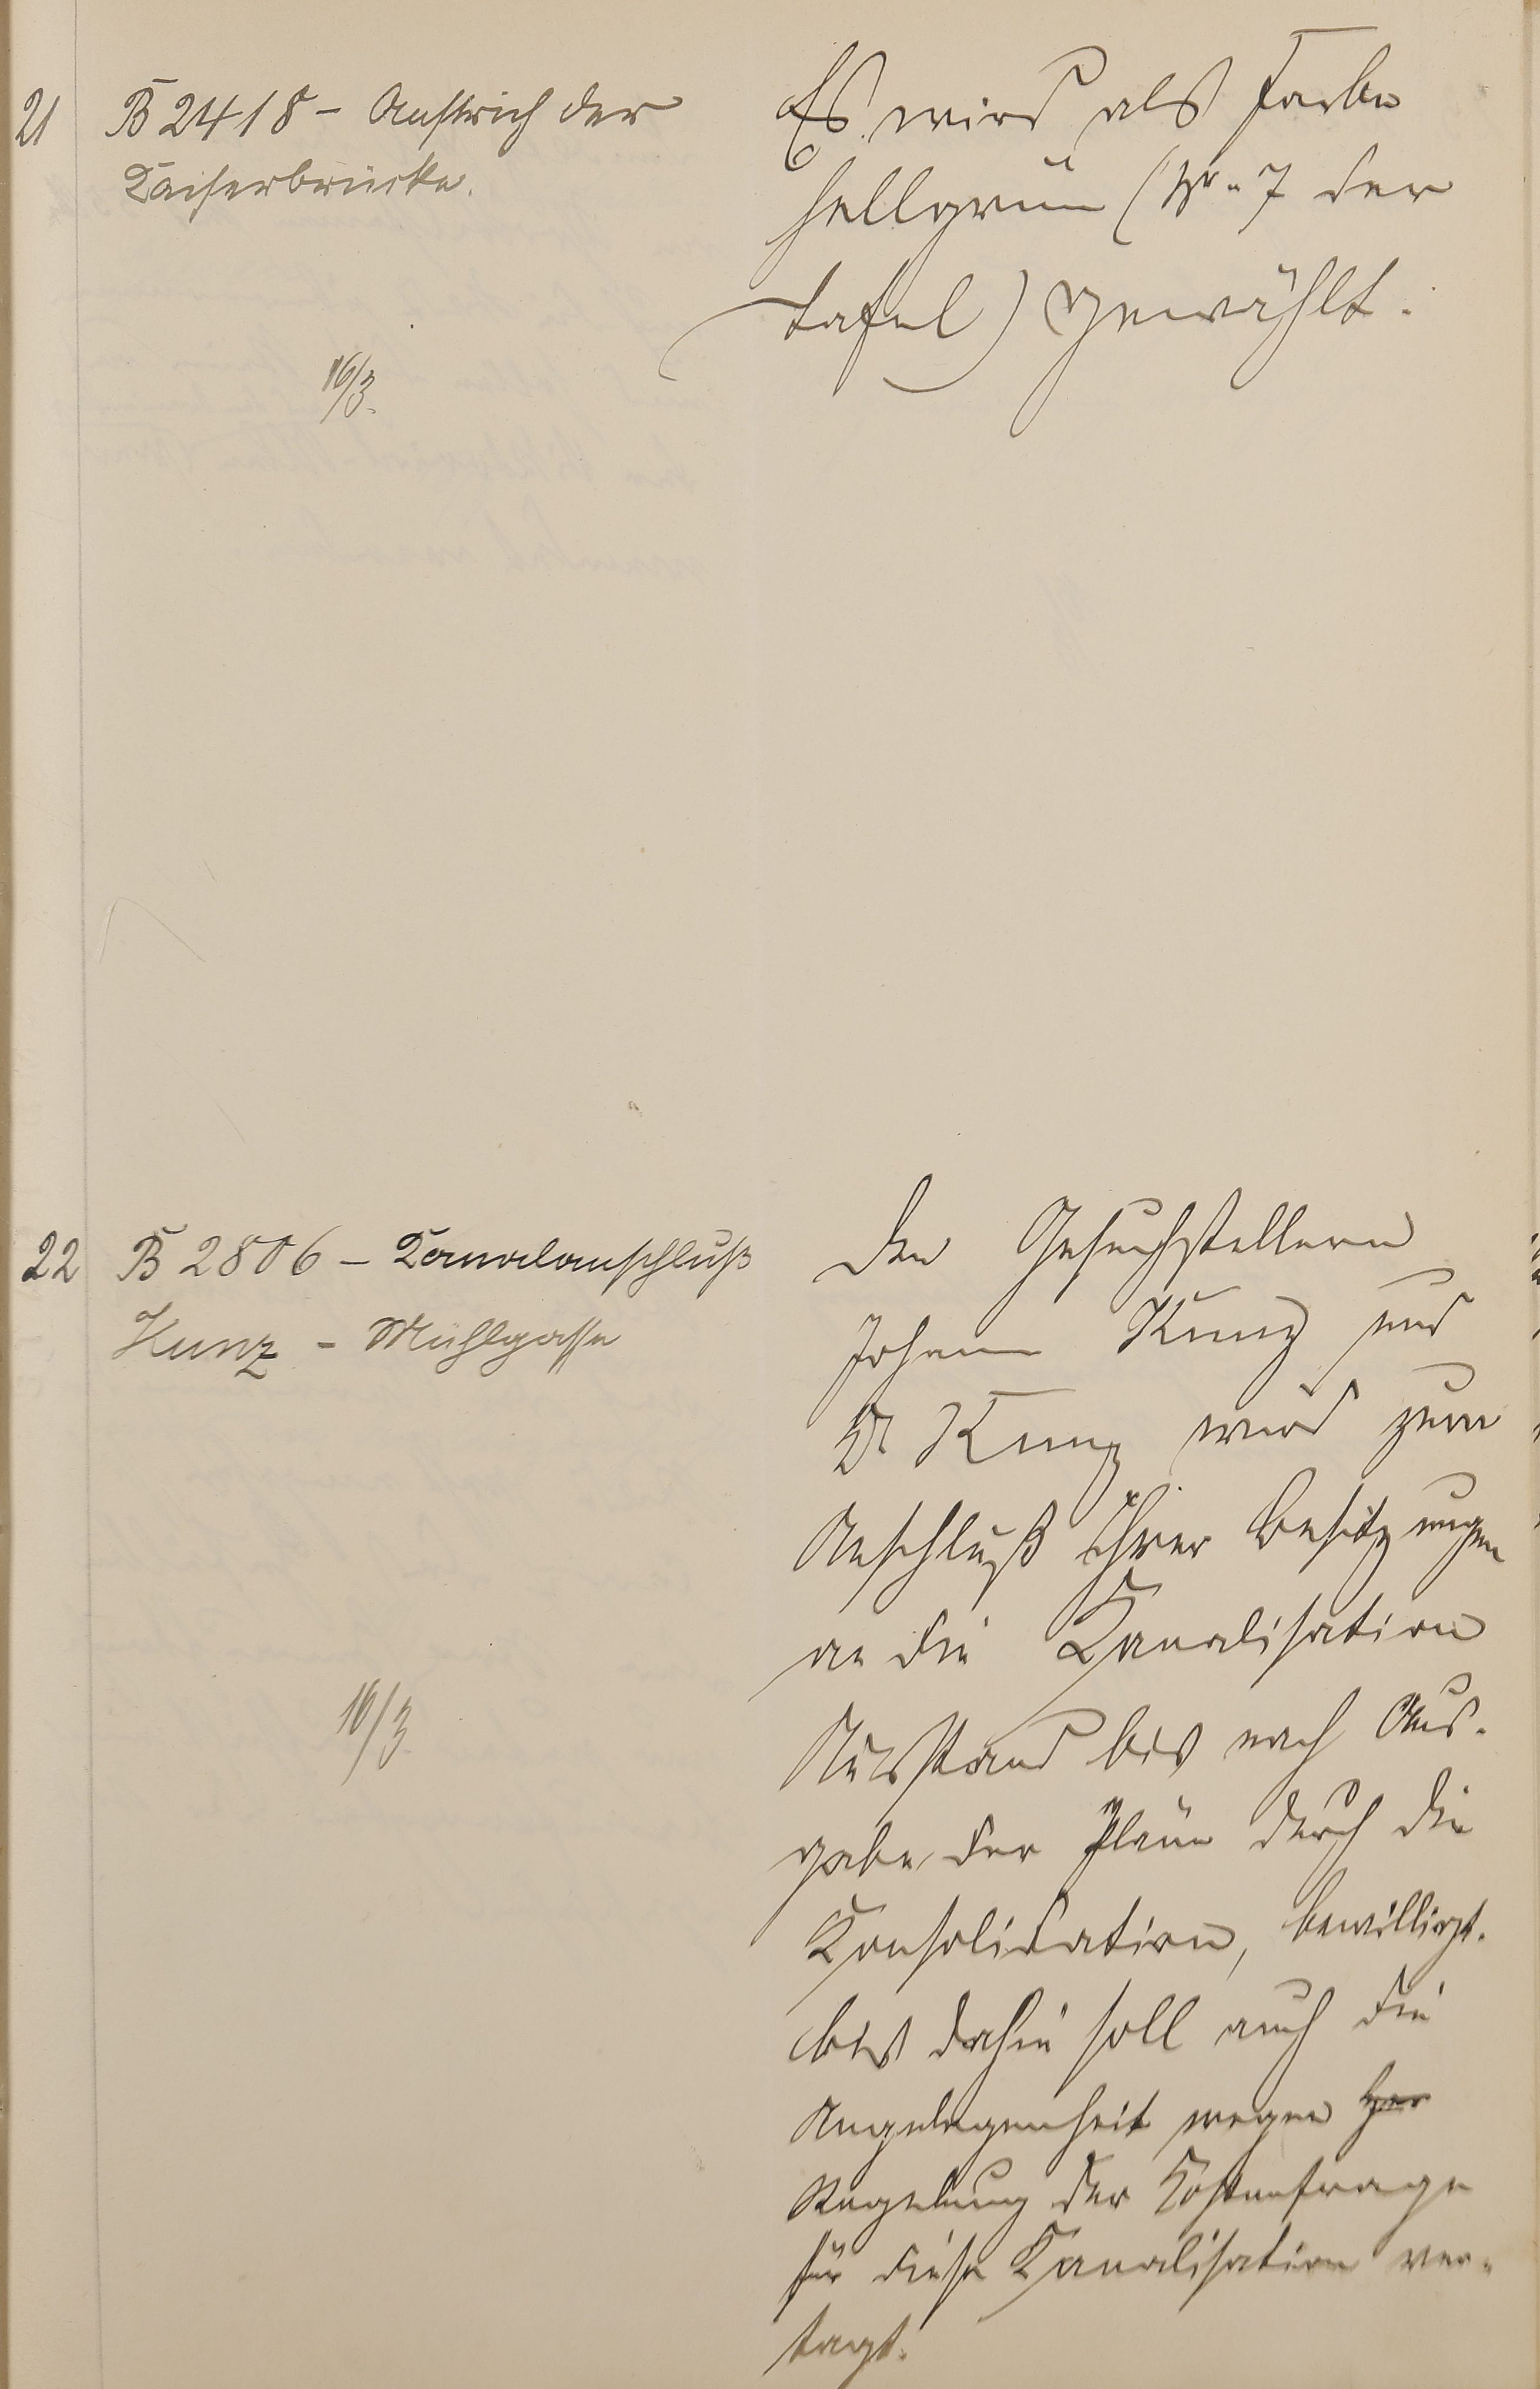 21
B 2418 - Anstrich der
Kaiserbrücke.
16/3.
Es wird als Farbe
hellgrün (Nr. 7 der
Tafel) gewählt.
22
B 2806 - Kanalanschluß
Kunz - Mühlgasse
16/3.
Den Gesuchstellern
Johann Kunz und
Dr Kunz wird zum
Anschluß ihrer Besitzungen
an die Kanalisation
Ausstand bis nach Aus-
gabe der Pläne durch die
Konsolidation, bewilligt.
bis dahin soll auch die
Angelegenheit wegen
Regelung der Kostenfrage
für diese Kanalisation ver-
tagt.